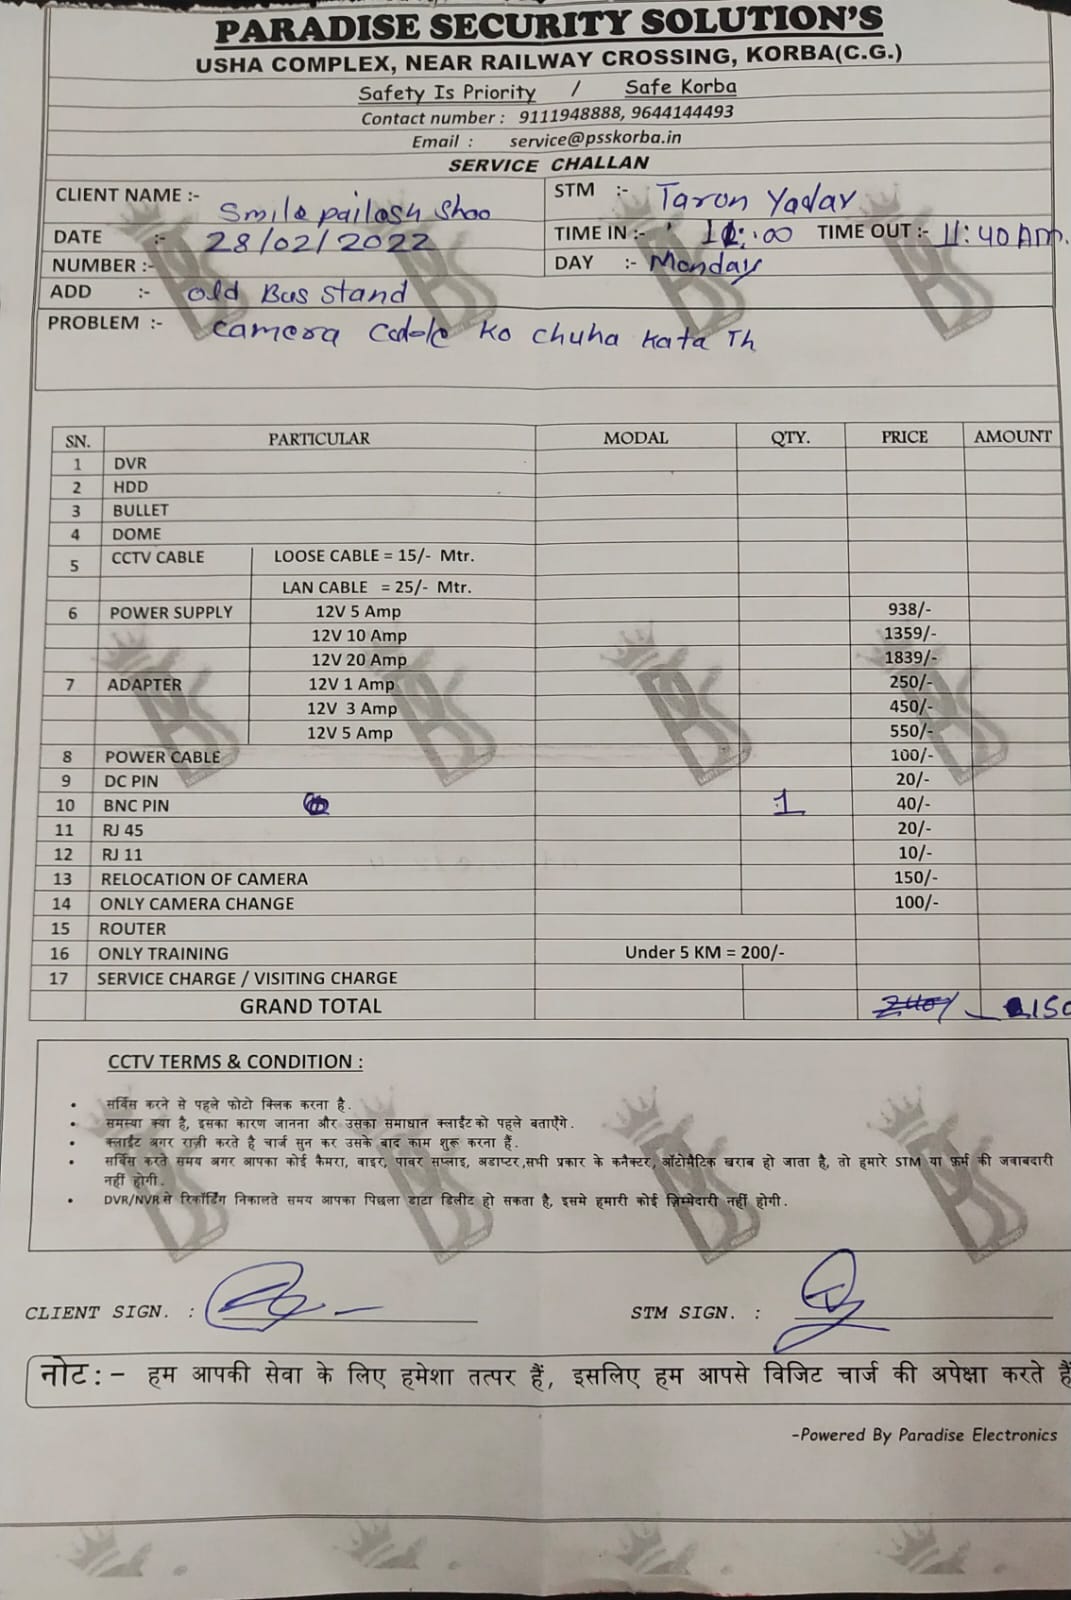 PARADISE SECURITY SOLUTION'S
USHA COMPLEX, NEAR RAILWAY CROSSING, KORBA(C.G.)
Safety Is Priority / Safe Korba
Contact number : 9111948888, 9644144493
Email : service@psskorba.in
SERVICE CHALLAN
CLIENT NAME :- Smile pailash Shoo
STM :- Tarun Yadav
DATE :- 28/02/2022
TIME IN :- 11:00 TIME OUT :- 11:40 AM.
NUMBER :-
DAY :- Monday
ADD :- old Bus stand
PROBLEM :- camera cable ko chuha kata Th
SN. PARTICULAR MODAL QTY. PRICE AMOUNT
1 DVR
2 HDD
3 BULLET
4 DOME
5 CCTV CABLE LOOSE CABLE = 15/- Mtr.
LAN CABLE = 25/- Mtr.
6 POWER SUPPLY 12V 5 Amp 938/-
12V 10 Amp 1359/-
12V 20 Amp 1839/-
7 ADAPTER 12V 1 Amp 250/-
12V 3 Amp 450/-
12V 5 Amp 550/-
8 POWER CABLE 100/-
9 DC PIN 20/-
10 BNC PIN 1 40/-
11 RJ 45 20/-
12 RJ 11 10/-
13 RELOCATION OF CAMERA 150/-
14 ONLY CAMERA CHANGE 100/-
15 ROUTER
16 ONLY TRAINING Under 5 KM = 200/-
17 SERVICE CHARGE / VISITING CHARGE
GRAND TOTAL 150
CCTV TERMS & CONDITION :
• सर्विस करने से पहले फोटो क्लिक करना है.
• समस्या क्या है, इसका कारण जानना और उसका समाधान क्लाईंट को पहले बताएँगे.
• क्लाईंट अगर राज़ी करते है चार्ज सुन कर उसके बाद काम शुरू करना हैं.
• सर्विस करते समय अगर आपका कोई कैमरा, वाइर, पावर सप्लाइ, अडाप्टर,सभी प्रकार के कनैक्टर, ऑटोमैटिक खराब हो जाता है, तो हमारे STM या फ़र्म की जवाबदारी
नहीं होगी.
• DVR/NVR से रिकॉर्डिंग निकालते समय आपका पिछला डाटा डिलीट हो सकता है, इसमे हमारी कोई ज़िम्मेदारी नहीं होगी.
CLIENT SIGN. :
STM SIGN. :
नोट:- हम आपकी सेवा के लिए हमेशा तत्पर हैं, इसलिए हम आपसे विजिट चार्ज की अपेक्षा करते हैं
-Powered By Paradise Electronics